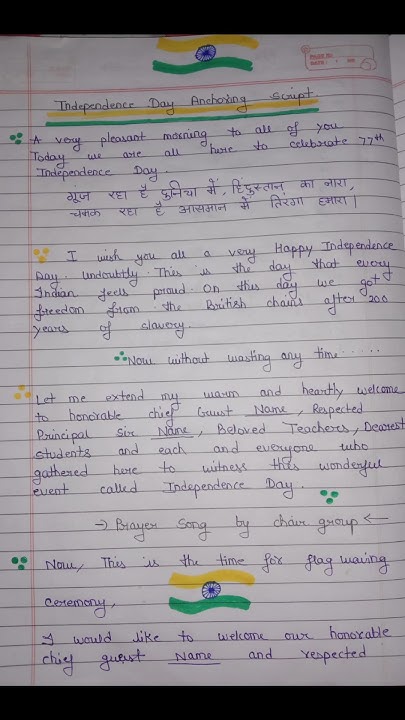 Independence Day Anchoring Script
A very pleasant morning to all of you
Today we are all here to celebrate 77th
Independence Day.
गूंज रहा है दुनिया में, हिंदुस्तान का नारा,
चमक रहा है आसमान में तिरंगा हमारा।
I wish you all a very Happy Independence
Day. Undoubtly This is the day that every
Indian feels proud. On this day we got
freedom from the British chains after 200
years of slavery.
Now without wasting any time......
Let me extend my warm and heartly welcome
to honorable chief Guest Name, Respected
Principal Sir Name, Beloved Teachers, Dearest
students and each and everyone who
gathered here to witness this wonderful
event called Independence Day.
→ Prayer Song by choir group ←
Now, This is the time for flag waving
ceremony,
I would like to welcome our honorable
chief guest Name and respected